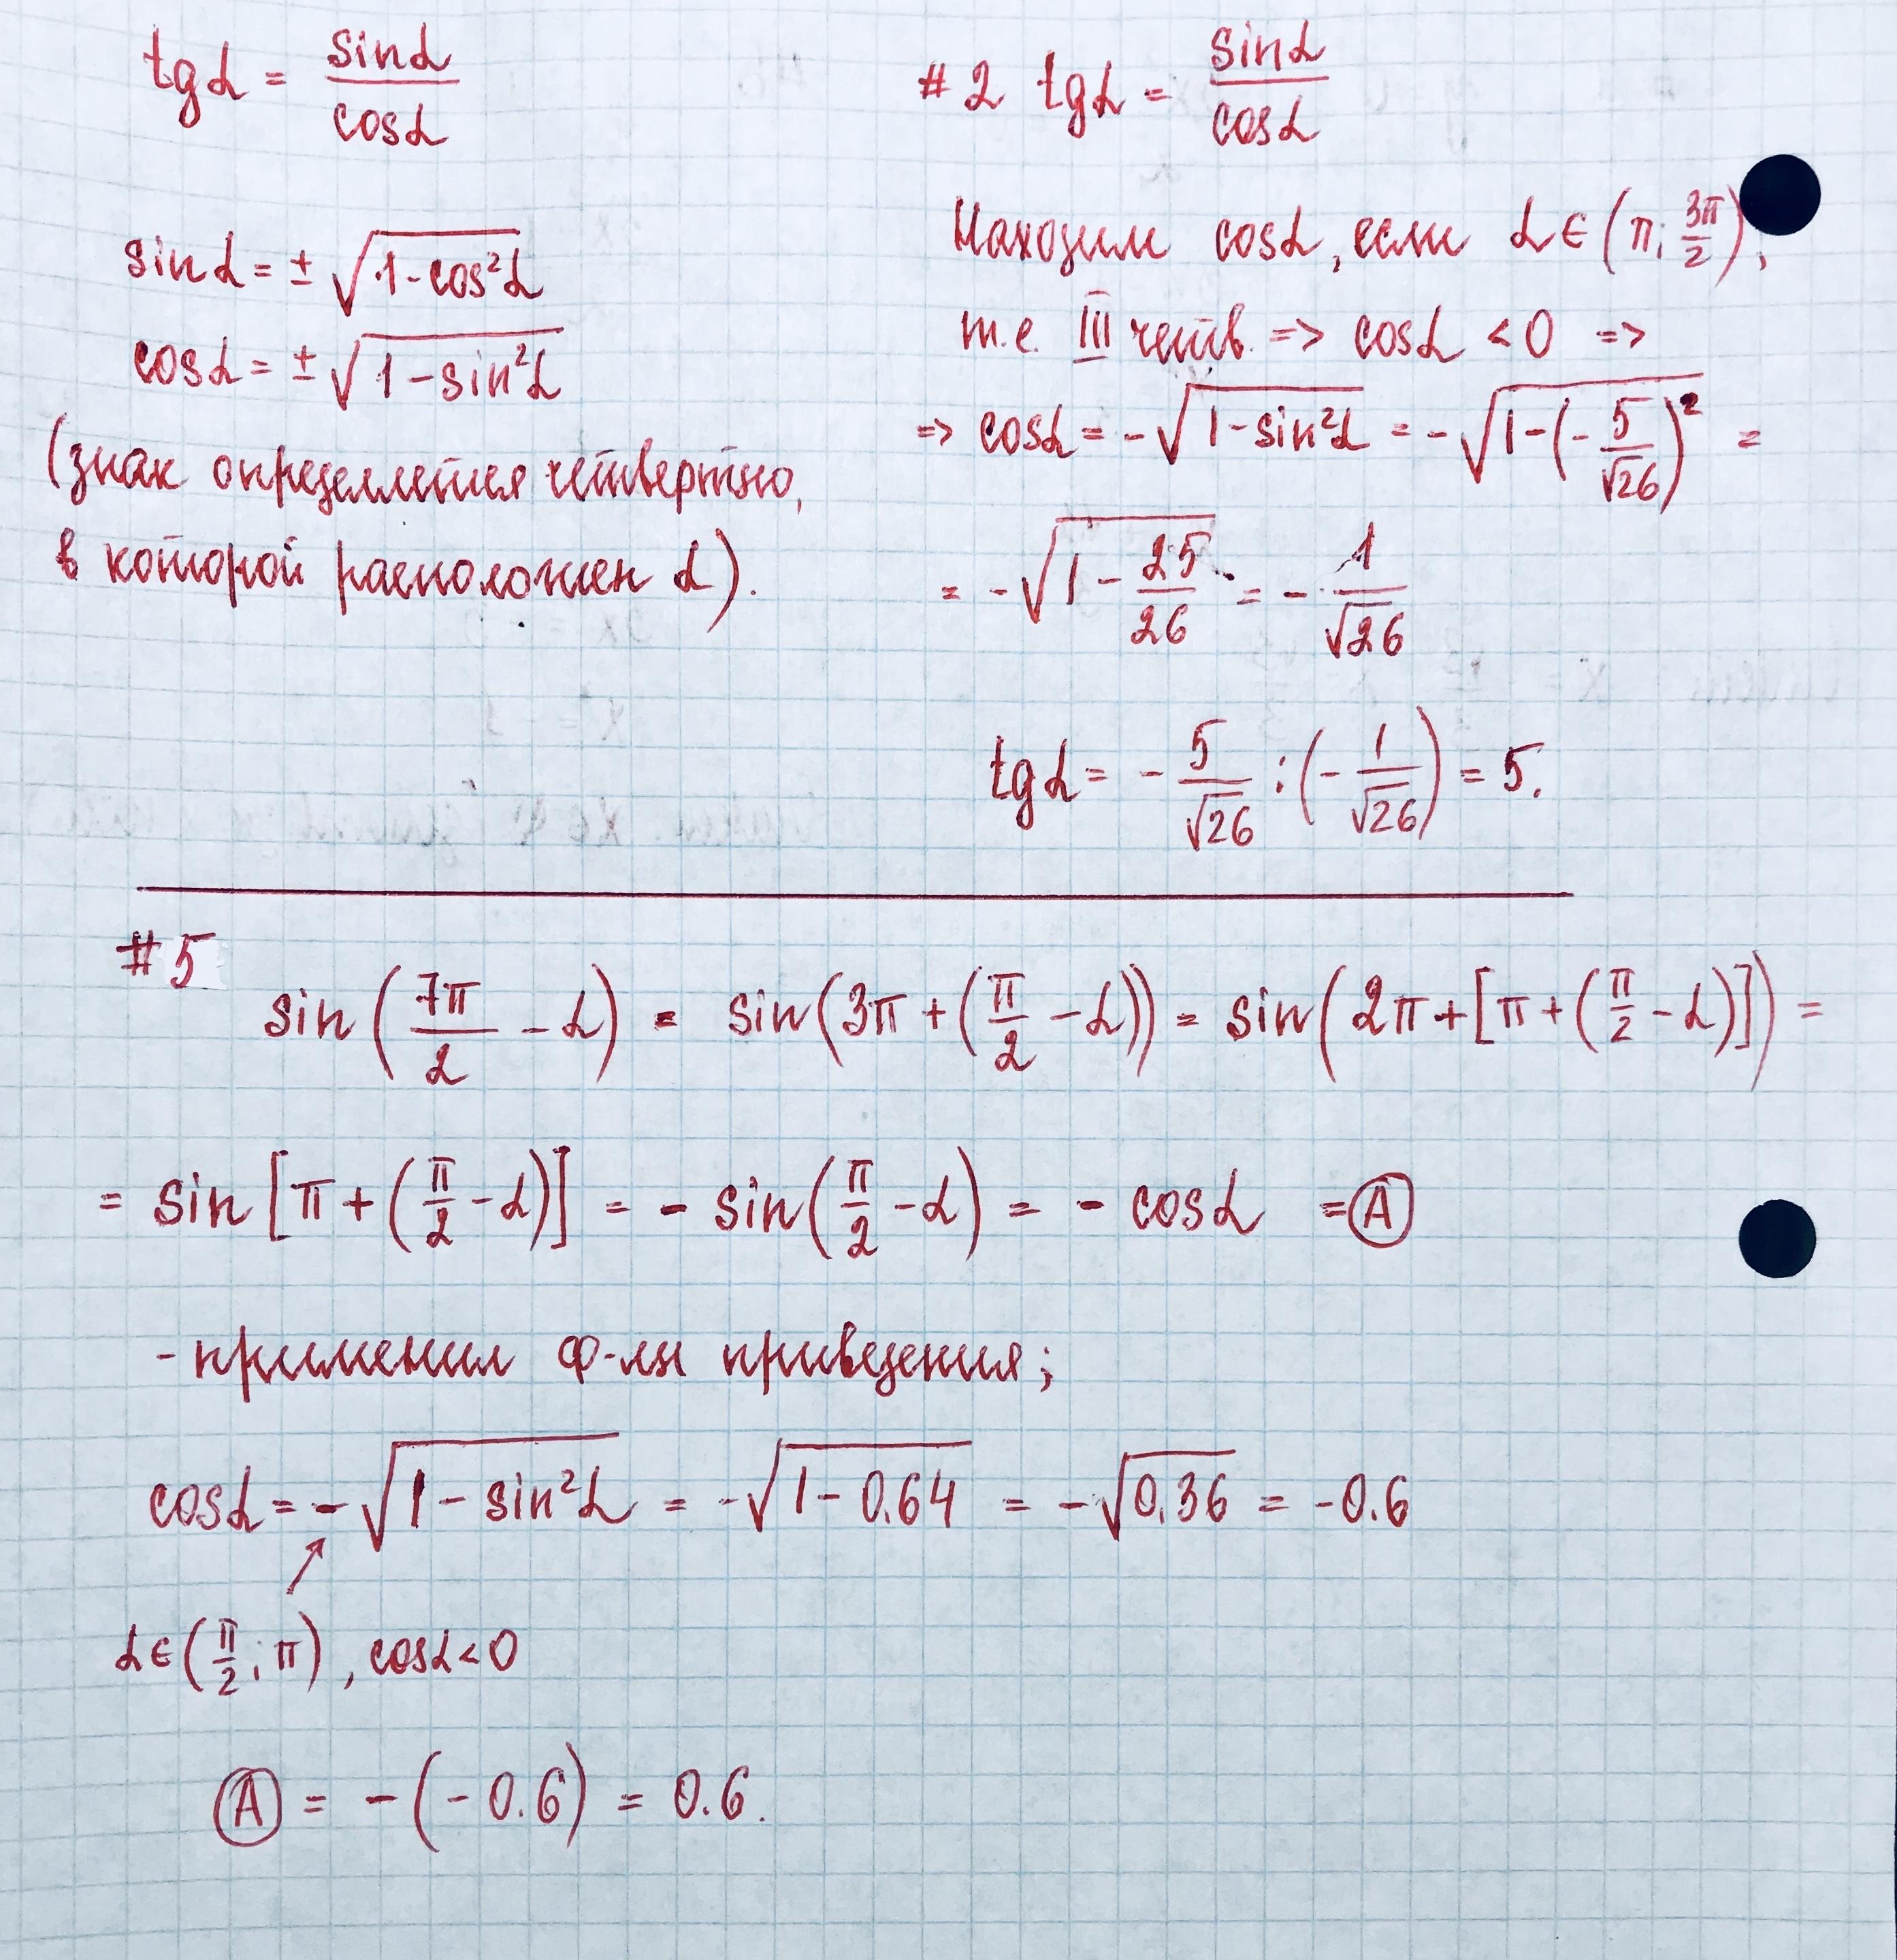 tg α = sin α / cos α
sin α = ± √(1 - cos² α)
cos α = ± √(1 - sin² α)
(знак определяется четвертью,
в которой расположен α).
# 2 tg α = sin α / cos α
Находим cos α, если α ∈ (π; 3π/2),
т.е. III четв. => cos α < 0 =>
=> cos α = - √(1 - sin² α) = - √(1 - (- 5/√26)²) =
= - √(1 - 25/26) = - 1/√26
tg α = - 5/√26 : (- 1/√26) = 5.
# 5
sin (7π/2 - α) = sin (3π + (π/2 - α)) = sin (2π + [π + (π/2 - α)]) =
= sin [π + (π/2 - α)] = - sin (π/2 - α) = - cos α = Ⓐ
- применил ф-лы приведения;
cos α = - √(1 - sin² α) = - √(1 - 0.64) = - √0.36 = -0.6
α ∈ (π/2; π), cos α < 0
Ⓐ = - (- 0.6) = 0.6.